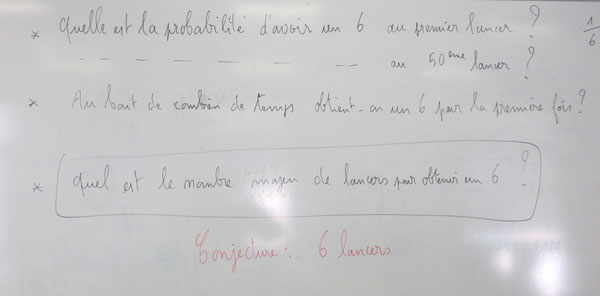 * Quelle est la probabilité d'avoir un 6 au premier lancer ? 1/6
- - - - - - - au 50ème lancer ?
* Au bout de combien de temps obtient-on un 6 pour la première fois ?
* Quel est le nombre moyen de lancers pour obtenir un 6 ?
Conjecture : 6 lancers